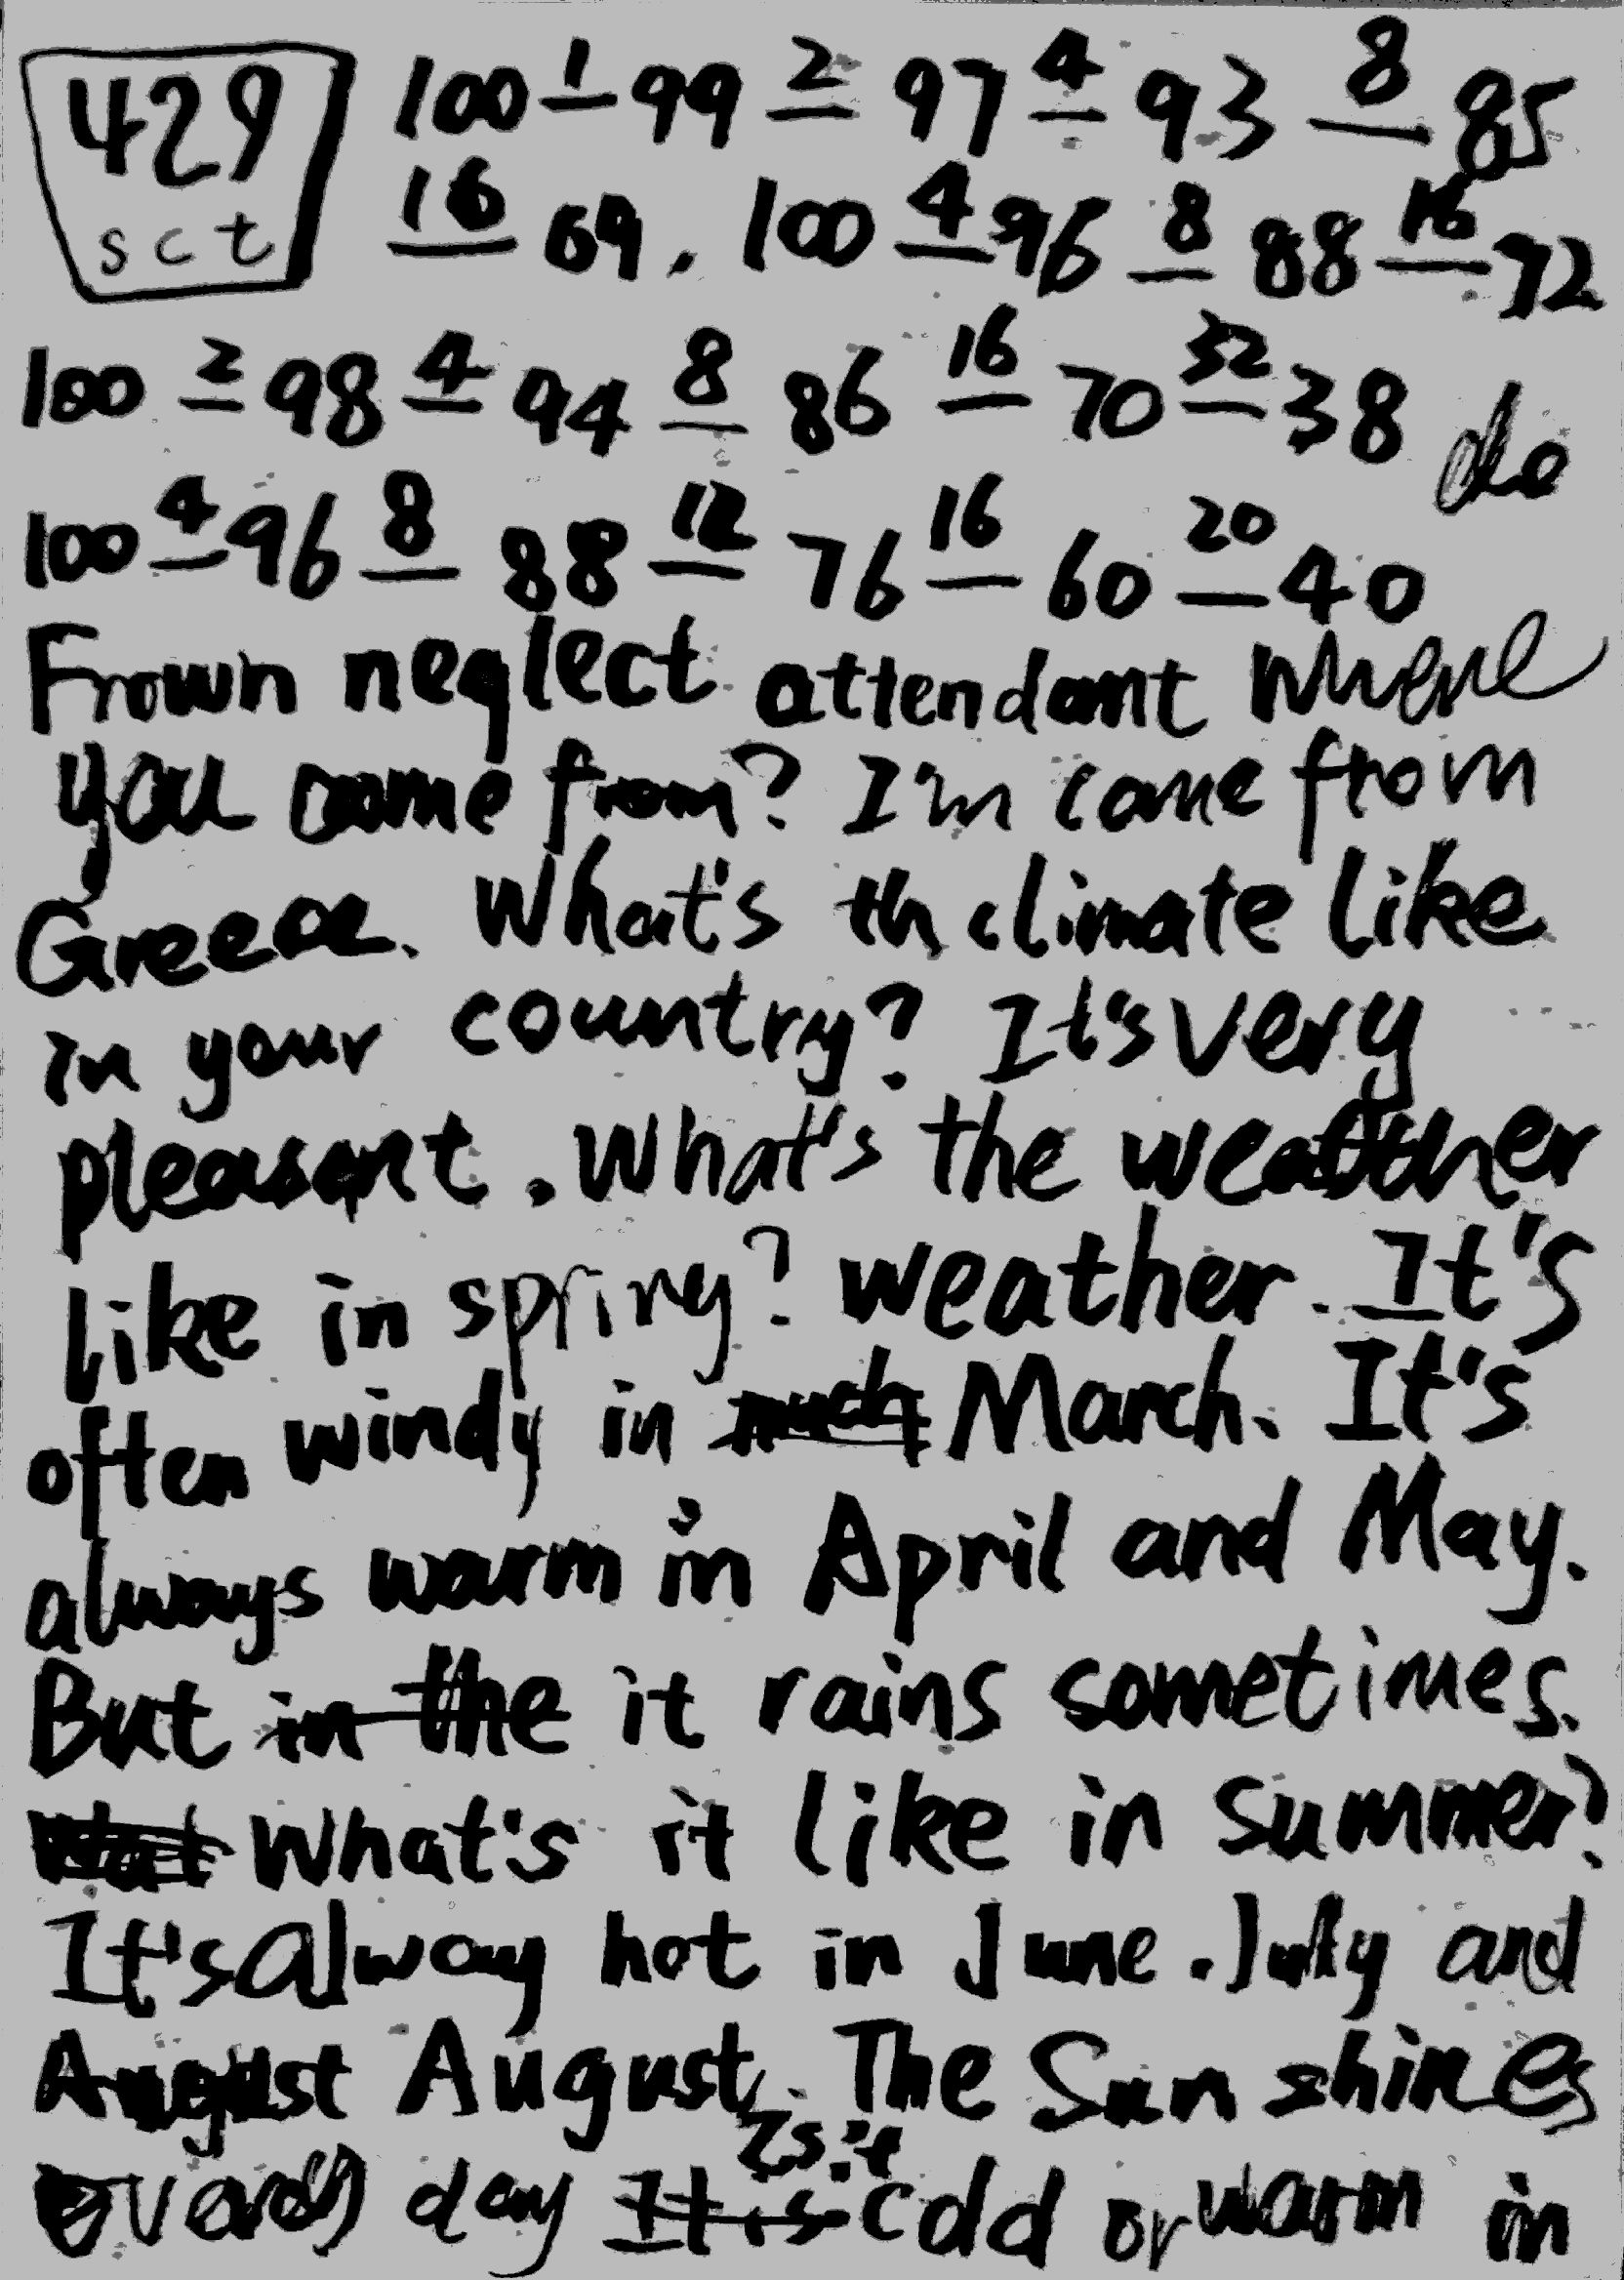 429 100 1 99 2 97 4 93 8 85
sct 16 69. 100 4 96 8 88 16 72
100 2 98 4 94 8 86 16 70 32 38 do
100 4 96 8 88 12 76 16 60 20 40
Frown neglect attendant Where
you come from? I'm come from
Greece. What's th climate like
in your country? It's very
pleasant. What's the weather
like in spring? weather. It's
often windy in much March. It's
always warm in April and May.
But in the it rains sometimes.
What What's it like in summer?
It's alway hot in June. July and
August August. The Sun shines
Is it
every day It is cold or warm in